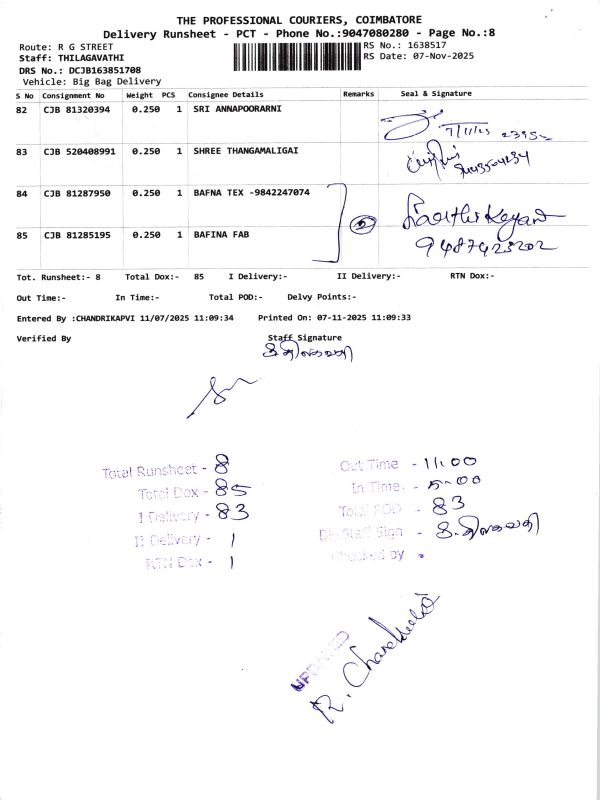 THE PROFESSIONAL COURIERS, COIMBATORE
Delivery Runsheet - PCT - Phone No.:9047080280 - Page No.:8
Route: R G STREET RS No.: 1638517
Staff: THILAGAVATHI RS Date: 07-Nov-2025
DRS No.: DCJB163851708
Vehicle: Big Bag Delivery
S No Consignment No Weight PCS Consignee Details Remarks Seal & Signature
82 CJB 81320394 0.250 1 SRI ANNAPOORARNI
7/11/25
83 CJB 520408991 0.250 1 SHREE THANGAMALIGAI
84 CJB 81287950 0.250 1 BAFNA TEX -9842247074
②
85 CJB 81285195 0.250 1 BAFINA FAB
9487423202
Tot. Runsheet:- 8 Total Dox:- 85 I Delivery:- II Delivery:- RTN Dox:-
Out Time:- In Time:- Total POD:- Delvy Points:-
Entered By :CHANDRIKAPVI 11/07/2025 11:09:34 Printed On: 07-11-2025 11:09:33
Verified By Staff Signature
க.திலகவதி
Total Runsheet - 8 Out Time - 11.00
Total Dox - 85 In Time. - 5-00
I Delivery - 83 Total POD - 83
II Delivery - 1 Dly Staff Sign - க.திலகவதி
RTN Dox - 1 Checked by
UPDATED